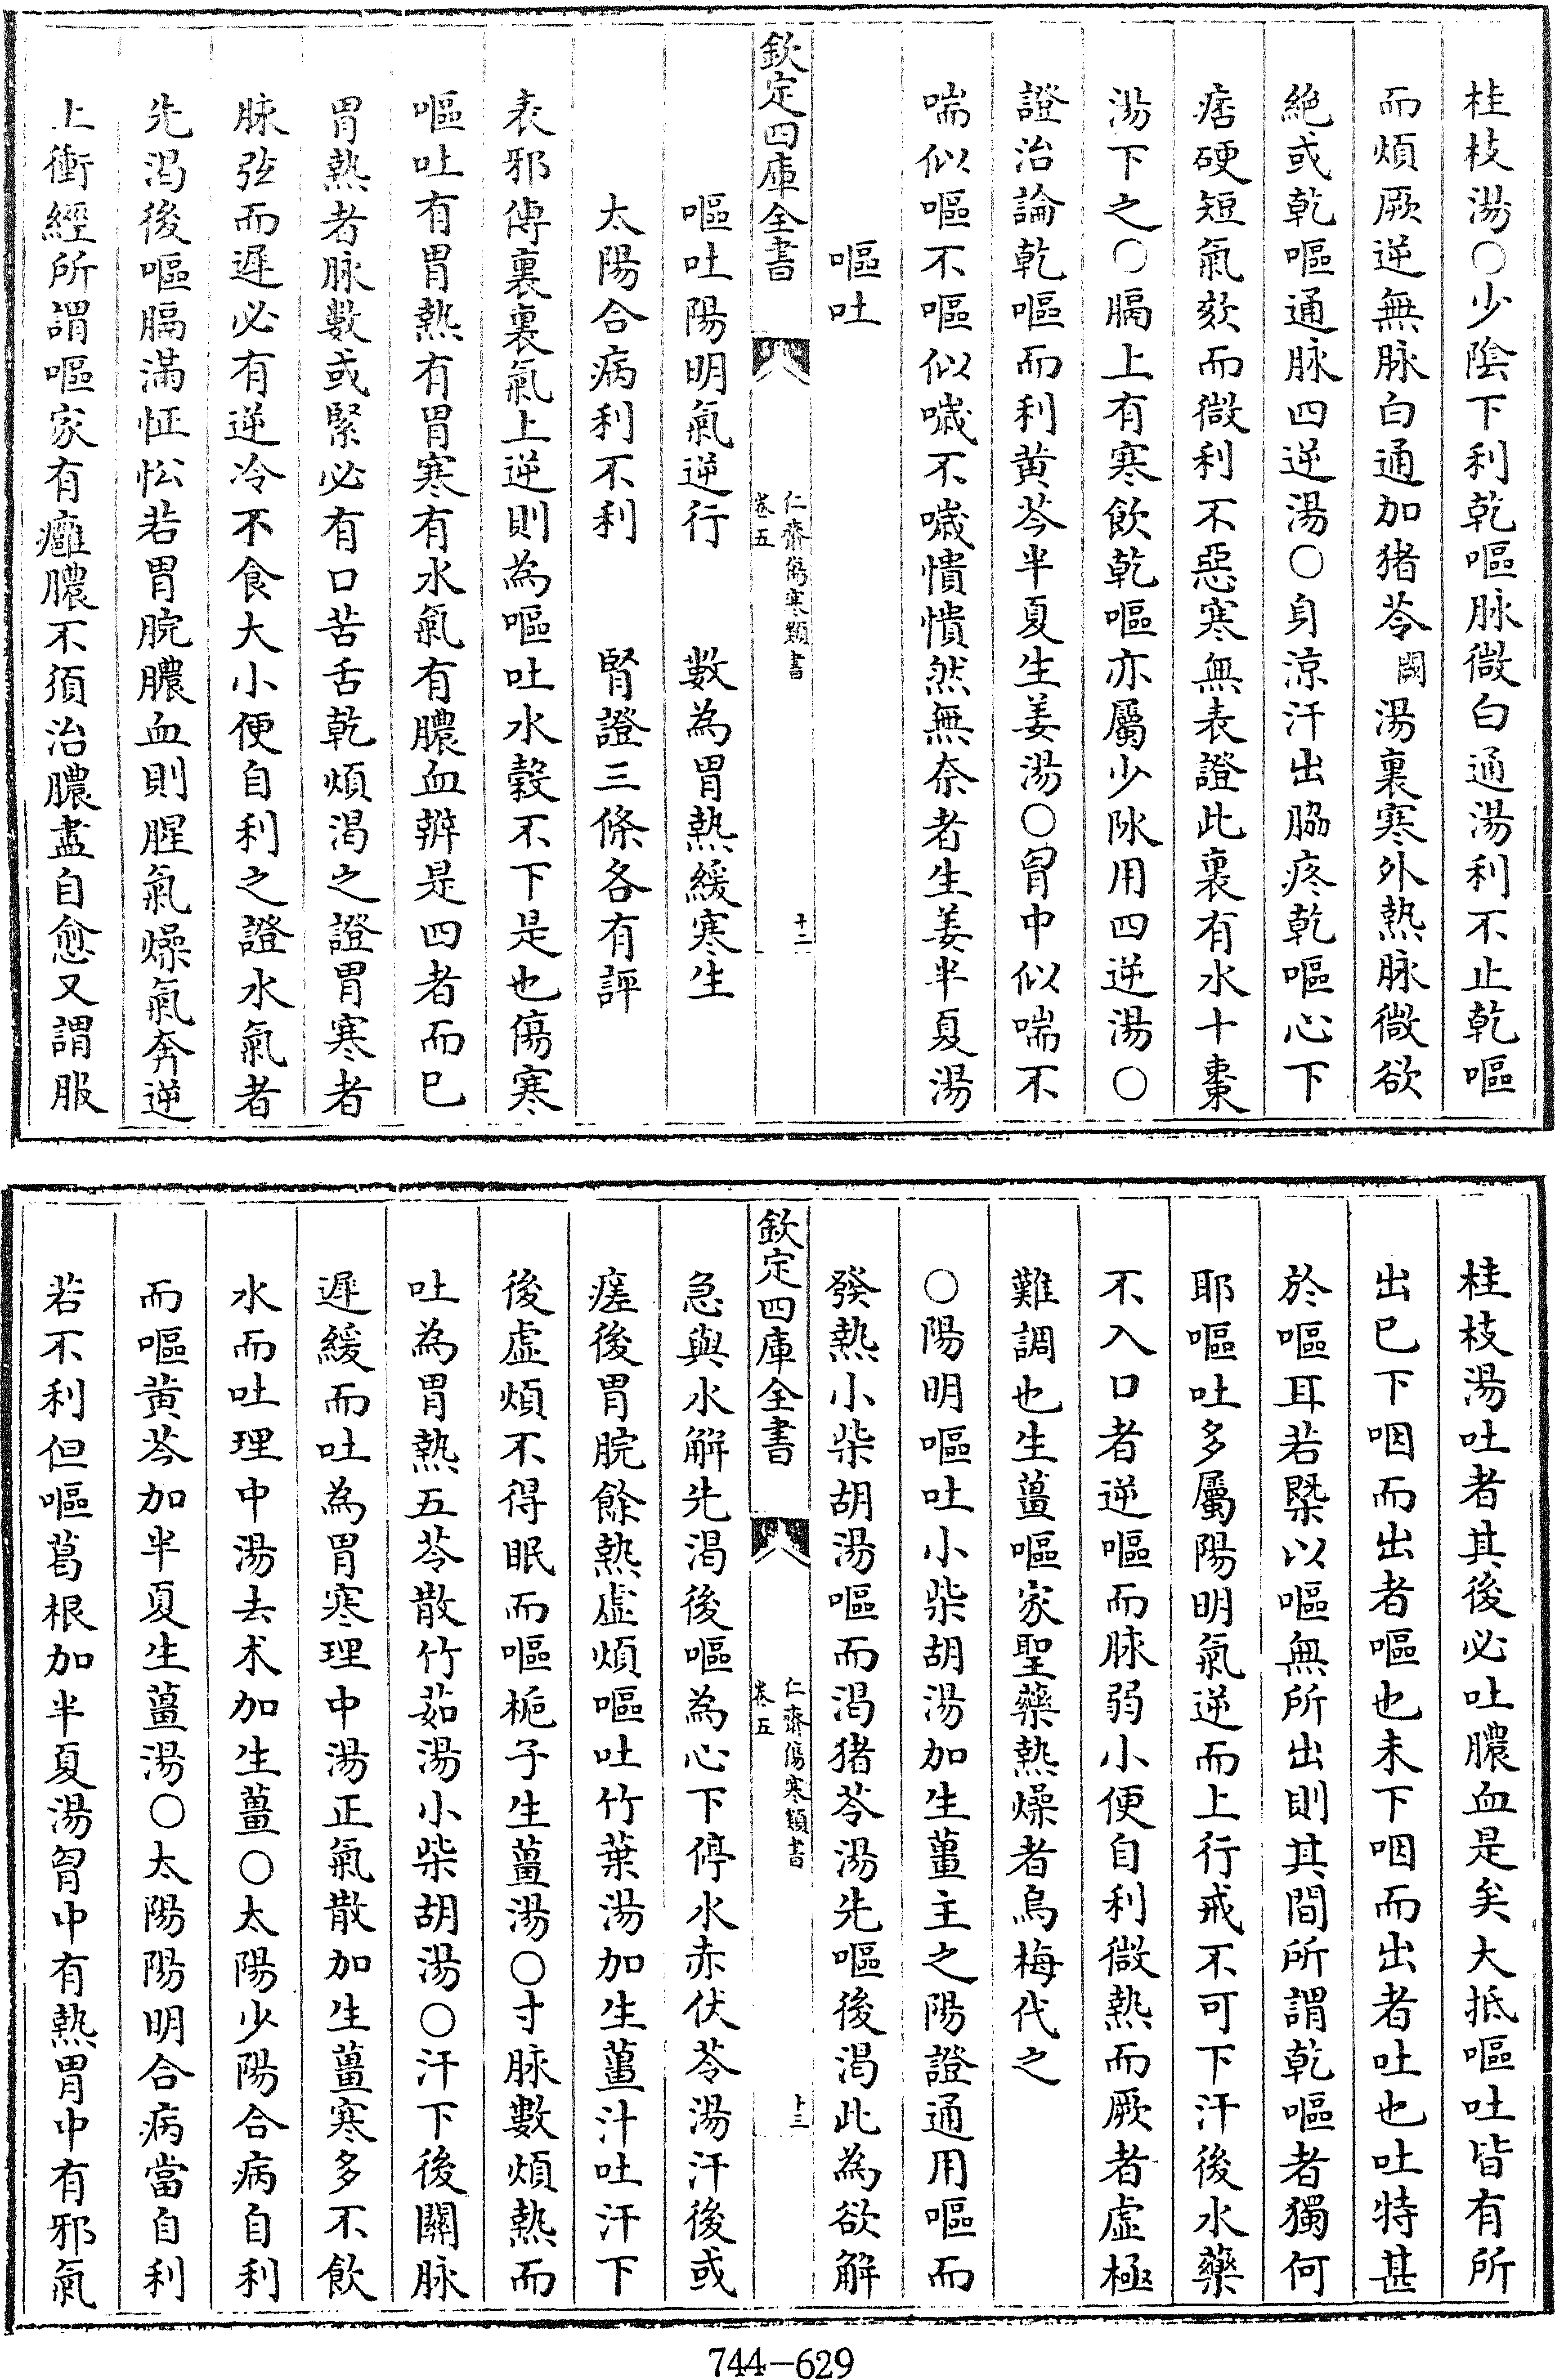 桂枝湯○少陰下利乾嘔脉微白通湯利不止乾嘔
而煩厥逆無脉白通加猪苓闕湯裏寒外熱脉微欲
絶或乾嘔通脉四逆湯○身涼汗出脇疼乾嘔心下
痞硬短氣欬而微利不惡寒無表證此裏有水十棗
湯下之○膈上有寒飲乾嘔亦屬少陰用四逆湯○
證治論乾嘔而利黄芩半夏生姜湯○胷中似喘不
喘似嘔不嘔似噦不噦憒憒然無奈者生姜半夏湯
嘔吐
欽定四庫全書
仁齋傷寒類書
卷五
十二
嘔吐陽明氣逆行　數為胃熱緩寒生
太陽合病利不利　腎證三條各有評
表邪傳裏裏氣上逆則為嘔吐水穀不下是也傷寒
嘔吐有胃熱有胃寒有水氣有膿血辨是四者而已
胃熱者脉數或緊必有口苦舌乾煩渴之證胃寒者
脉弦而遲必有逆冷不食大小便自利之證水氣者
先渴後嘔膈滿怔忪若胃脘膿血則腥氣燥氣奔逆
上衝經所謂嘔家有癰膿不須治膿盡自愈又謂服
桂枝湯吐者其後必吐膿血是矣大抵嘔吐皆有所
出已下咽而出者嘔也未下咽而出者吐也吐特甚
於嘔耳若槩以嘔無所出則其間所謂乾嘔者獨何
耶嘔吐多屬陽明氣逆而上行戒不可下汗後水藥
不入口者逆嘔而脉弱小便自利微熱而厥者虚極
難調也生薑嘔家聖藥熱燥者烏梅代之
○陽明嘔吐小柴胡湯加生薑主之陽證通用嘔而
發熱小柴胡湯嘔而渴猪苓湯先嘔後渴此為欲解
欽定四庫全書
仁齋傷寒類書
卷五
十三
急與水解先渴後嘔為心下停水赤伏苓湯汗後或
瘥後胃脘餘熱虚煩嘔吐竹葉湯加生薑汁吐汗下
後虚煩不得眠而嘔梔子生薑湯○寸脉數煩熱而
吐為胃熱五苓散竹茹湯小柴胡湯○汗下後關脉
遲緩而吐為胃寒理中湯正氣散加生薑寒多不飲
水而吐理中湯去术加生薑○太陽少陽合病自利
而嘔黄芩加半夏生薑湯○太陽陽明合病當自利
若不利但嘔葛根加半夏湯胷中有熱胃中有邪氣
744-629